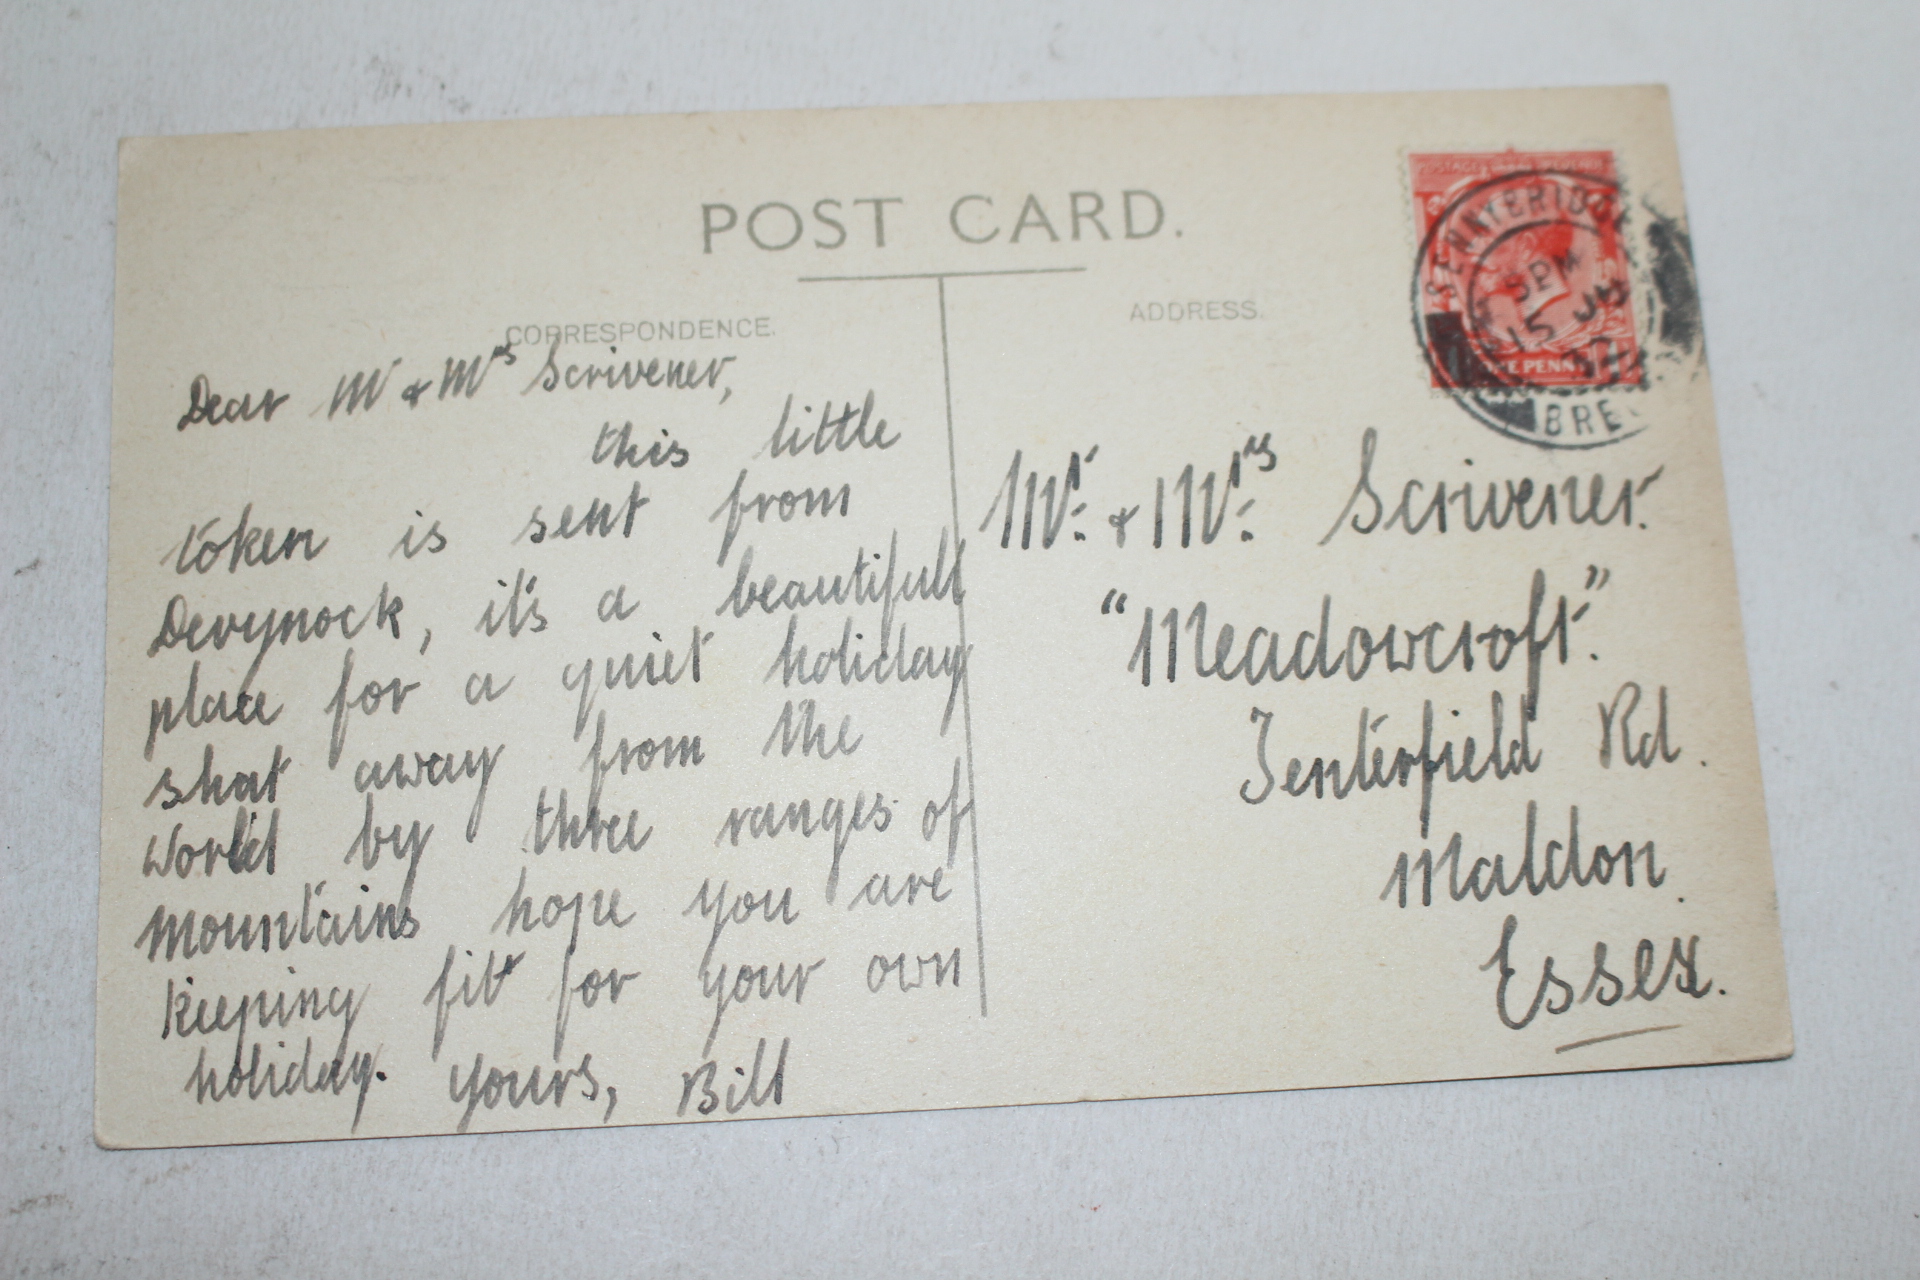 POST CARD.
CORRESPONDENCE.
ADDRESS.
Dear Mr & Mrs Scrivener,
this little
token is sent from
Devynock, it's a beautifull
place for a quiet holiday
shat away from the
world by three ranges of
mountains hope you are
keeping fit for your own
holiday. yours, Bill
Mr. & Mrs. Scrivener.
"Meadowcroft".
Tenterfield Rd.
Maldon.
Essex.
SENNYBRIDGE
5 PM
15 JU
BRE
ONE PENNY